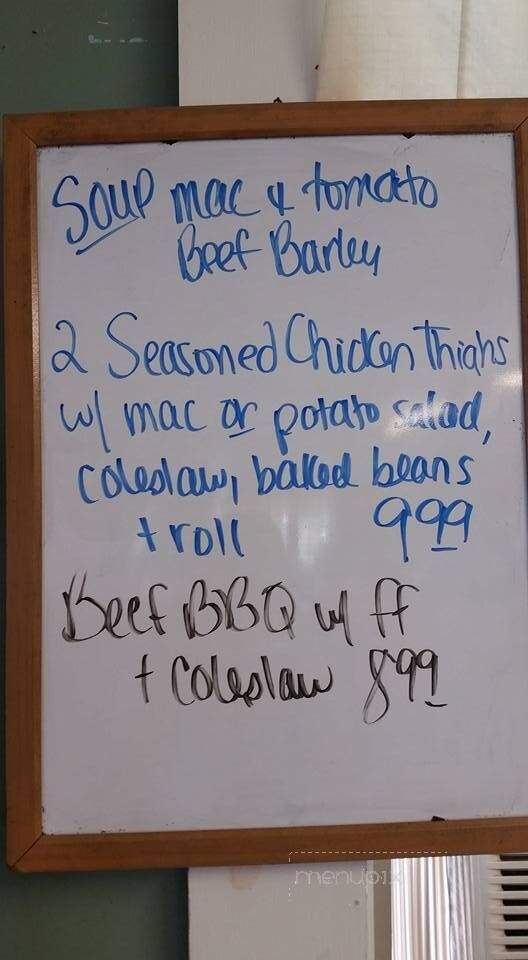 Soup mac & tomato
Beef Barley
2 Seasoned Chicken Thighs
w/ mac or potato salad,
coleslaw, baked beans
+ roll 9 99
Beef BBQ w/ ff
+ Coleslaw 8 99
menupix